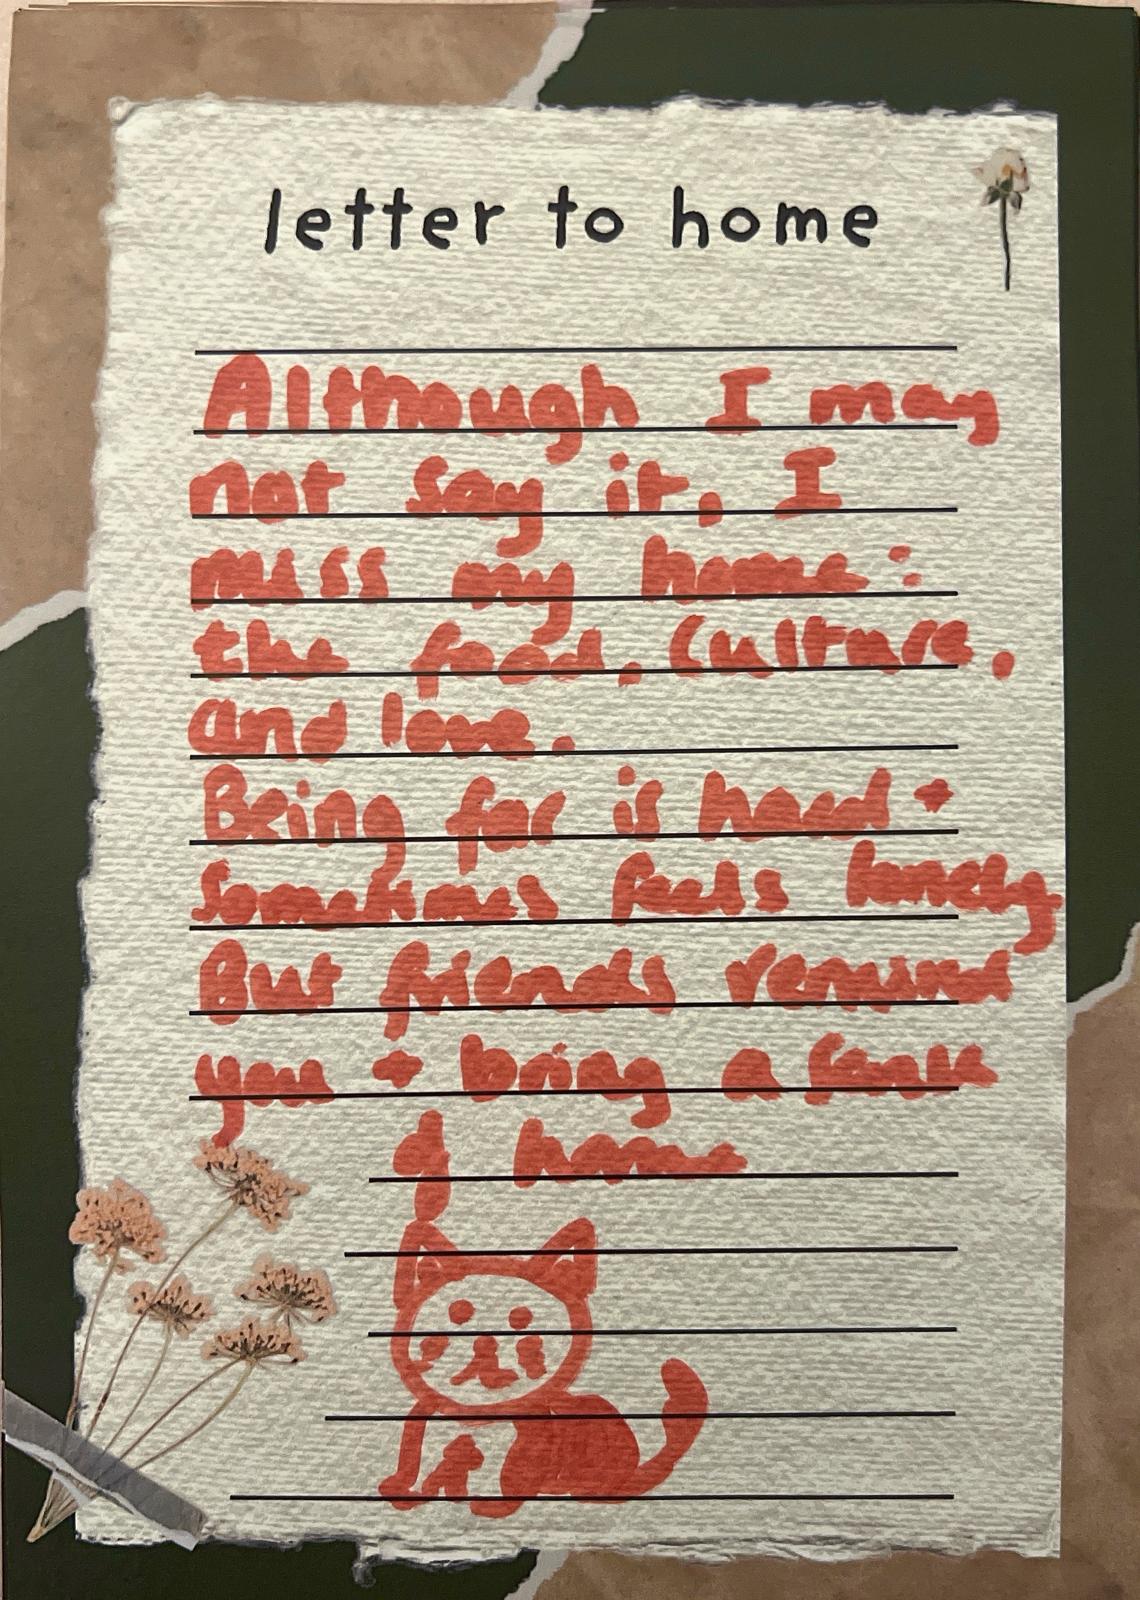 letter to home
Although I may
not say it, I
miss my home:
the food, culture,
and love.
Being far is hard +
sometimes feels lonely
But friends remind
you + bring a sense
of home